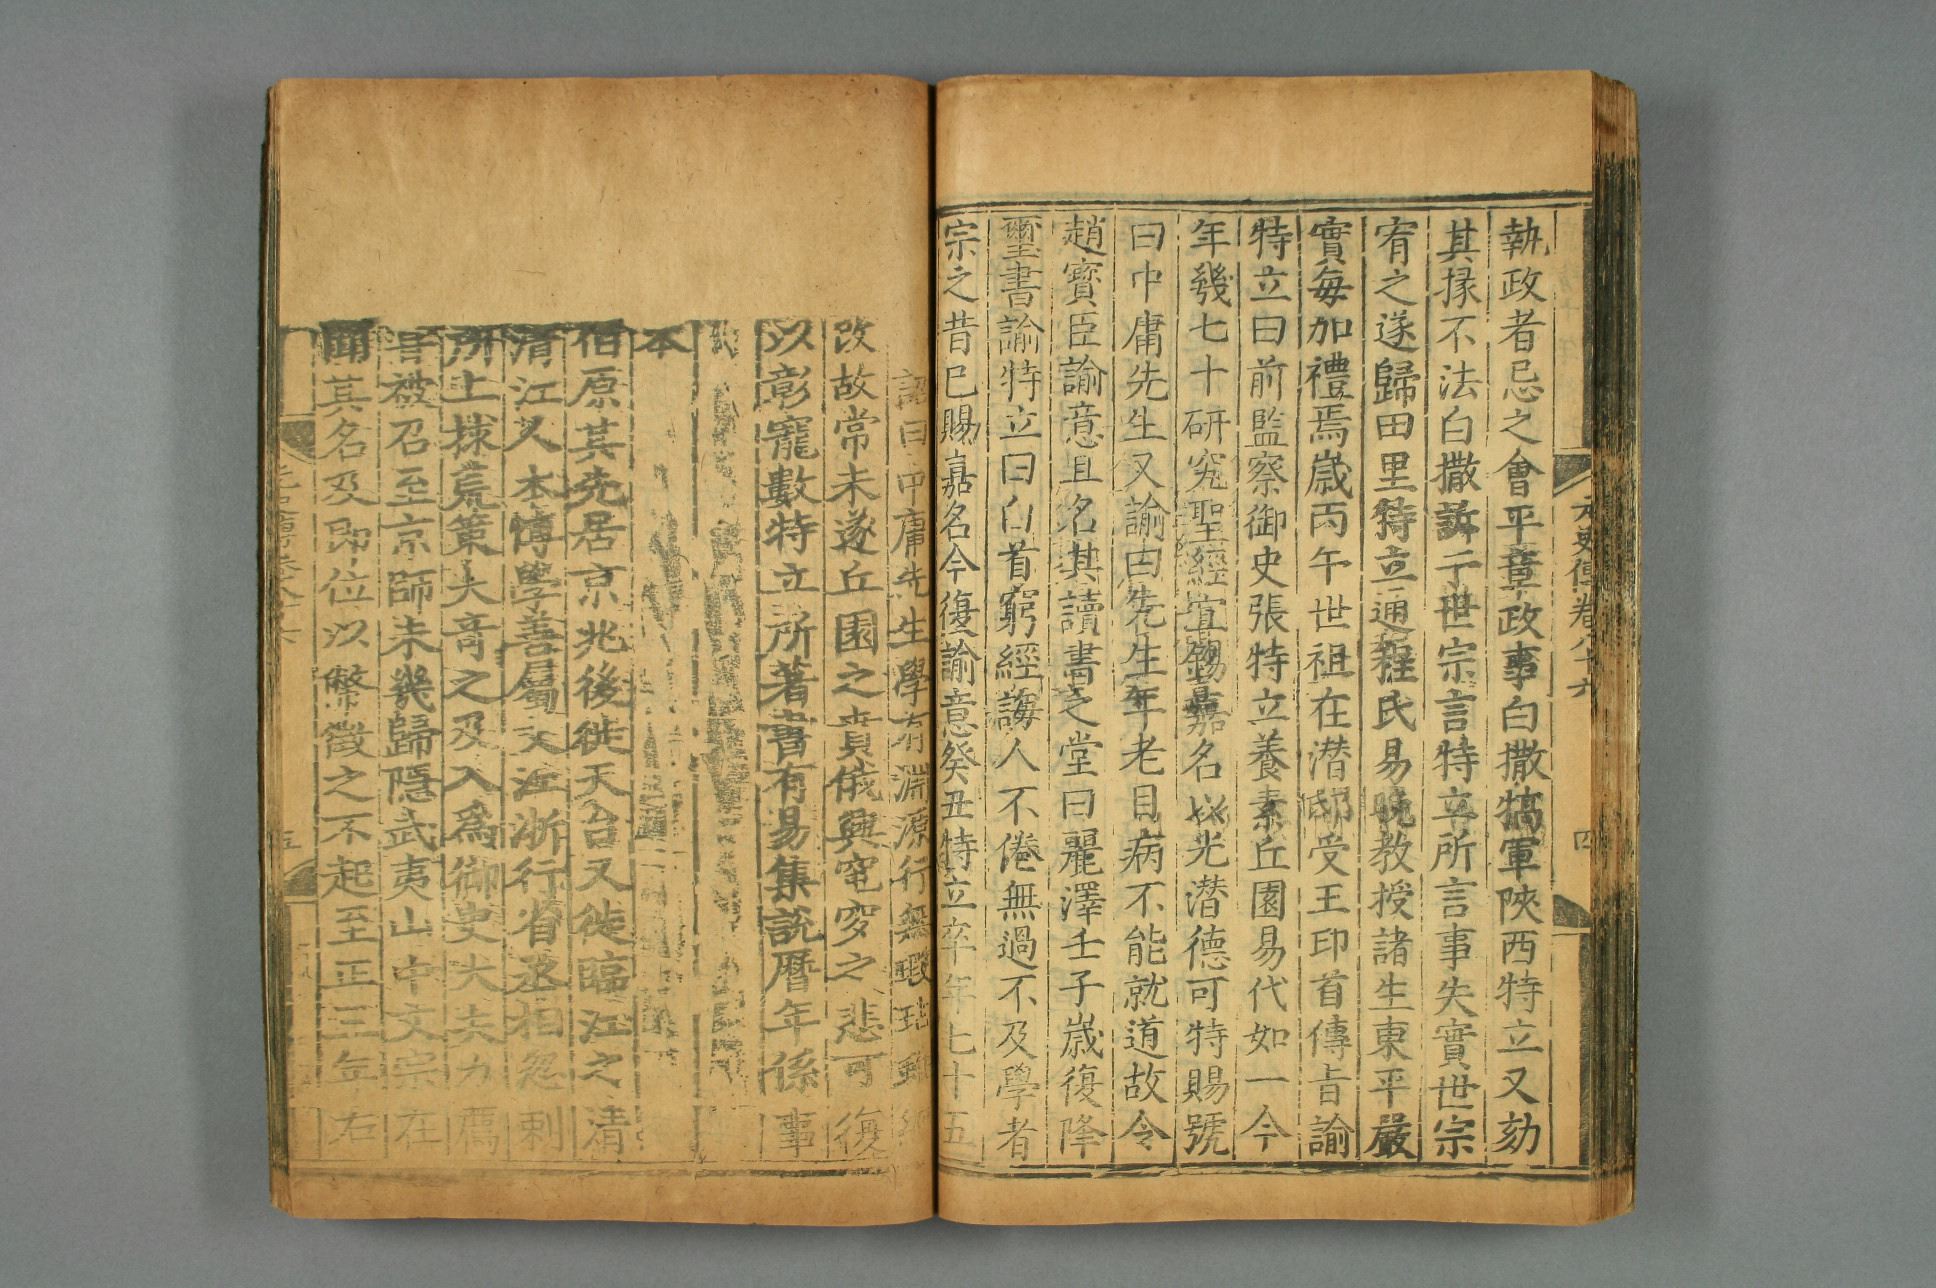 執政者忌之會平章政事白撒犒軍陝西特立又劾
其掾不法白撒訴于世宗言特立所言事失實世宗
宥之遂歸田里特立通程氏易晚教授諸生東平嚴
實每加禮焉歲丙午世祖在潜邸受王印首傳旨諭
特立曰前監察御史張特立養素丘園易代如一今
年幾七十研究聖經宜錫嘉名以光潜德可特賜號
曰中庸先生又諭曰先生年老目病不能就道故令
趙寳臣諭意且名其讀書之堂曰麗澤壬子歲復降
璽書諭特立曰白首窮經誨人不倦無過不及學者
宗之昔已賜嘉名今復諭意癸丑特立卒年七十五
元史傳卷八十六
四
詔曰中庸先生學有淵源行無瑕玷雖
改故常未遂丘園之賁俄興窀穸之悲可復
以彰寵數特立所著書有易集說曆年係事
本
伯原其先居京兆後徙天台又徙臨江之清
清江人本博學善屬文江浙行省丞相忽剌
所上捄荒策大奇之及入爲御史大夫力薦
召至京師未幾歸隱武夷山中文宗在
聞其名及即位以幣徵之不起至正三年右
五